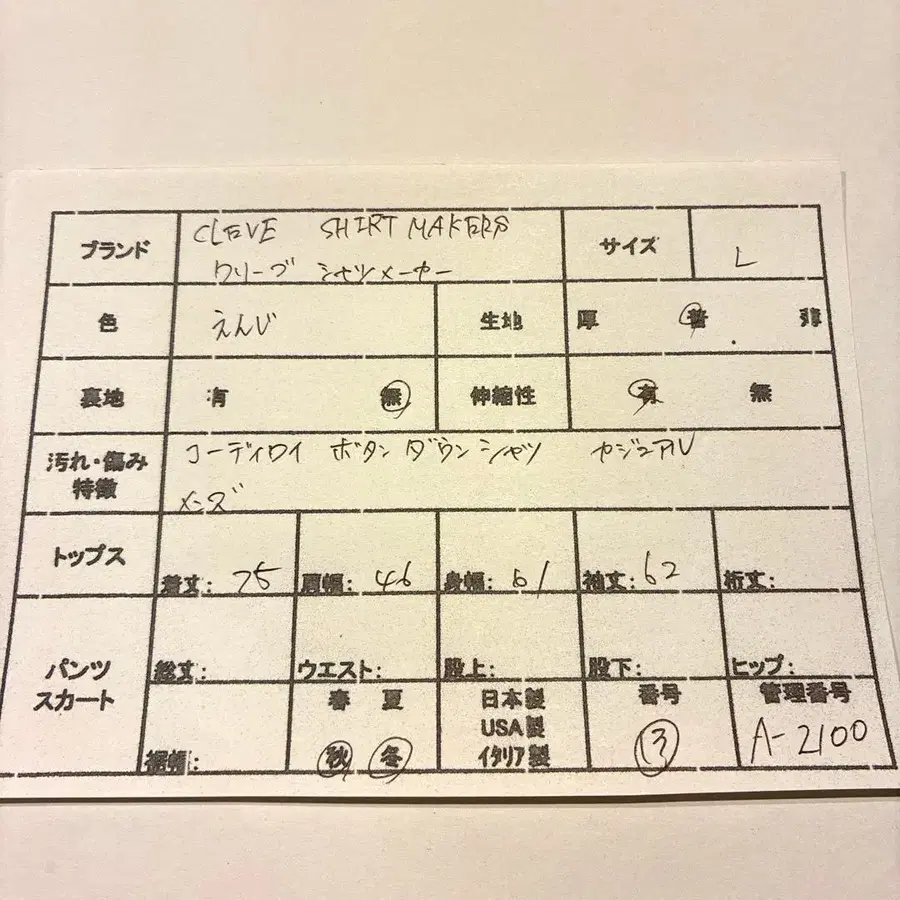 ブランド CLEVE SHIRT MAKERS サイズ L
クリーブ シャツメーカー
色 えんじ 生地 厚 普 薄
裏地 有 無 伸縮性 有 無
汚れ・傷み コーディロイ ボタンダウンシャツ カジュアル
特徴 メンズ
トップス 着丈: 75 肩幅: 46 身幅: 61 袖丈: 62 裄丈:
パンツ
スカート
総丈: ウエスト: 股上: 股下: ヒップ:
裾幅:
春 夏
秋 冬
日本製
USA製
イタリア製
番号
13
管理番号
A-2100